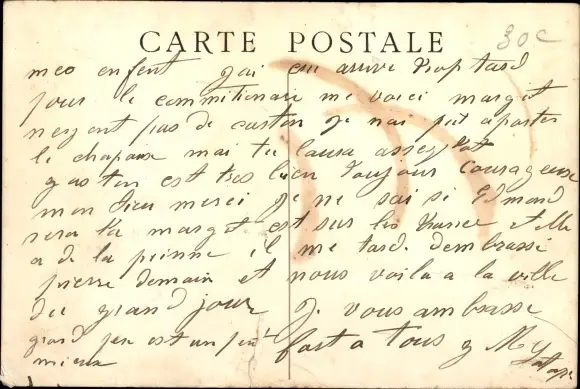 CARTE POSTALE
30 c
mes enfent j'ai eu arrivé trop tard
pour le commitionaire me voici margot
neyent pas de carton je nai put aporter
le chapaux mai tu laura assez tot
gaston est tres bien toujour courageuse
mon dieu merci je ne sai si Edmond
sera la margot est sur les trance et elle
a de la peinne il me tarde dembrassé
pierre demain et nous voila a la veille
du grand jour je vous ambrasse
grand pere est un peu fort a tous
mieux